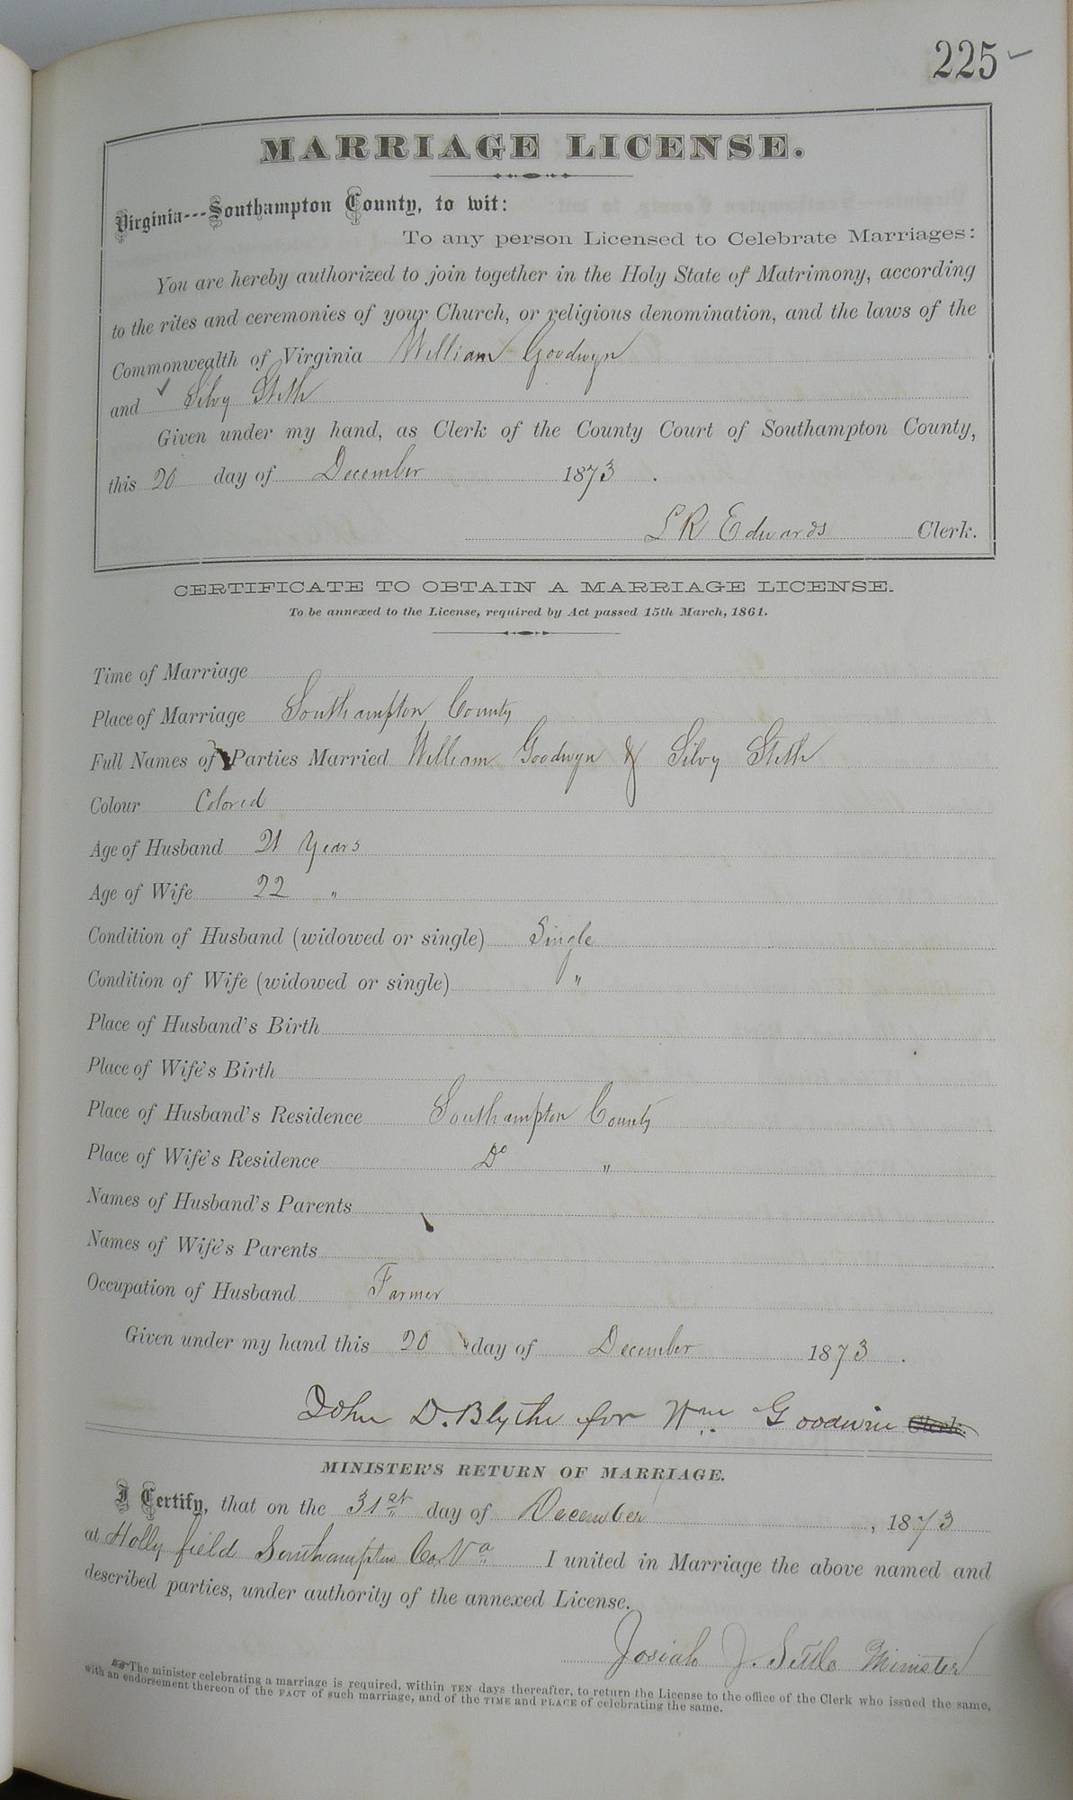 225
MARRIAGE LICENSE.
Virginia---Southampton County, to wit:
To any person Licensed to Celebrate Marriages:
You are hereby authorized to join together in the Holy State of Matrimony, according
to the rites and ceremonies of your Church, or religious denomination, and the laws of the
Commonwealth of Virginia William Goodwyn
and Silvy Stith
Given under my hand, as Clerk of the County Court of Southampton County,
this 20 day of December 1873.
L R Edwards Clerk.
CERTIFICATE TO OBTAIN A MARRIAGE LICENSE.
To be annexed to the License, required by Act passed 15th March, 1861.
Time of Marriage
Place of Marriage Southampton County
Full Names of Parties Married William Goodwyn & Silvy Stith
Colour Colored
Age of Husband 21 Years
Age of Wife 22 "
Condition of Husband (widowed or single) Single
Condition of Wife (widowed or single) "
Place of Husband's Birth
Place of Wife's Birth
Place of Husband's Residence Southampton County
Place of Wife's Residence Do "
Names of Husband's Parents
Names of Wife's Parents
Occupation of Husband Farmer
Given under my hand this 20 day of December 1873.
John D. Blythe for Wm Goodwin Clerk.
MINISTER'S RETURN OF MARRIAGE.
I Certify, that on the 31st day of December, 1873
at Holly field Southampton Co. Va I united in Marriage the above named and
described parties, under authority of the annexed License.
Josiah J. Settle Minister
The minister celebrating a marriage is required, within TEN days thereafter, to return the License to the office of the Clerk who issued the same,
with an endorsement thereon of the FACT of such marriage, and of the TIME and PLACE of celebrating the same.